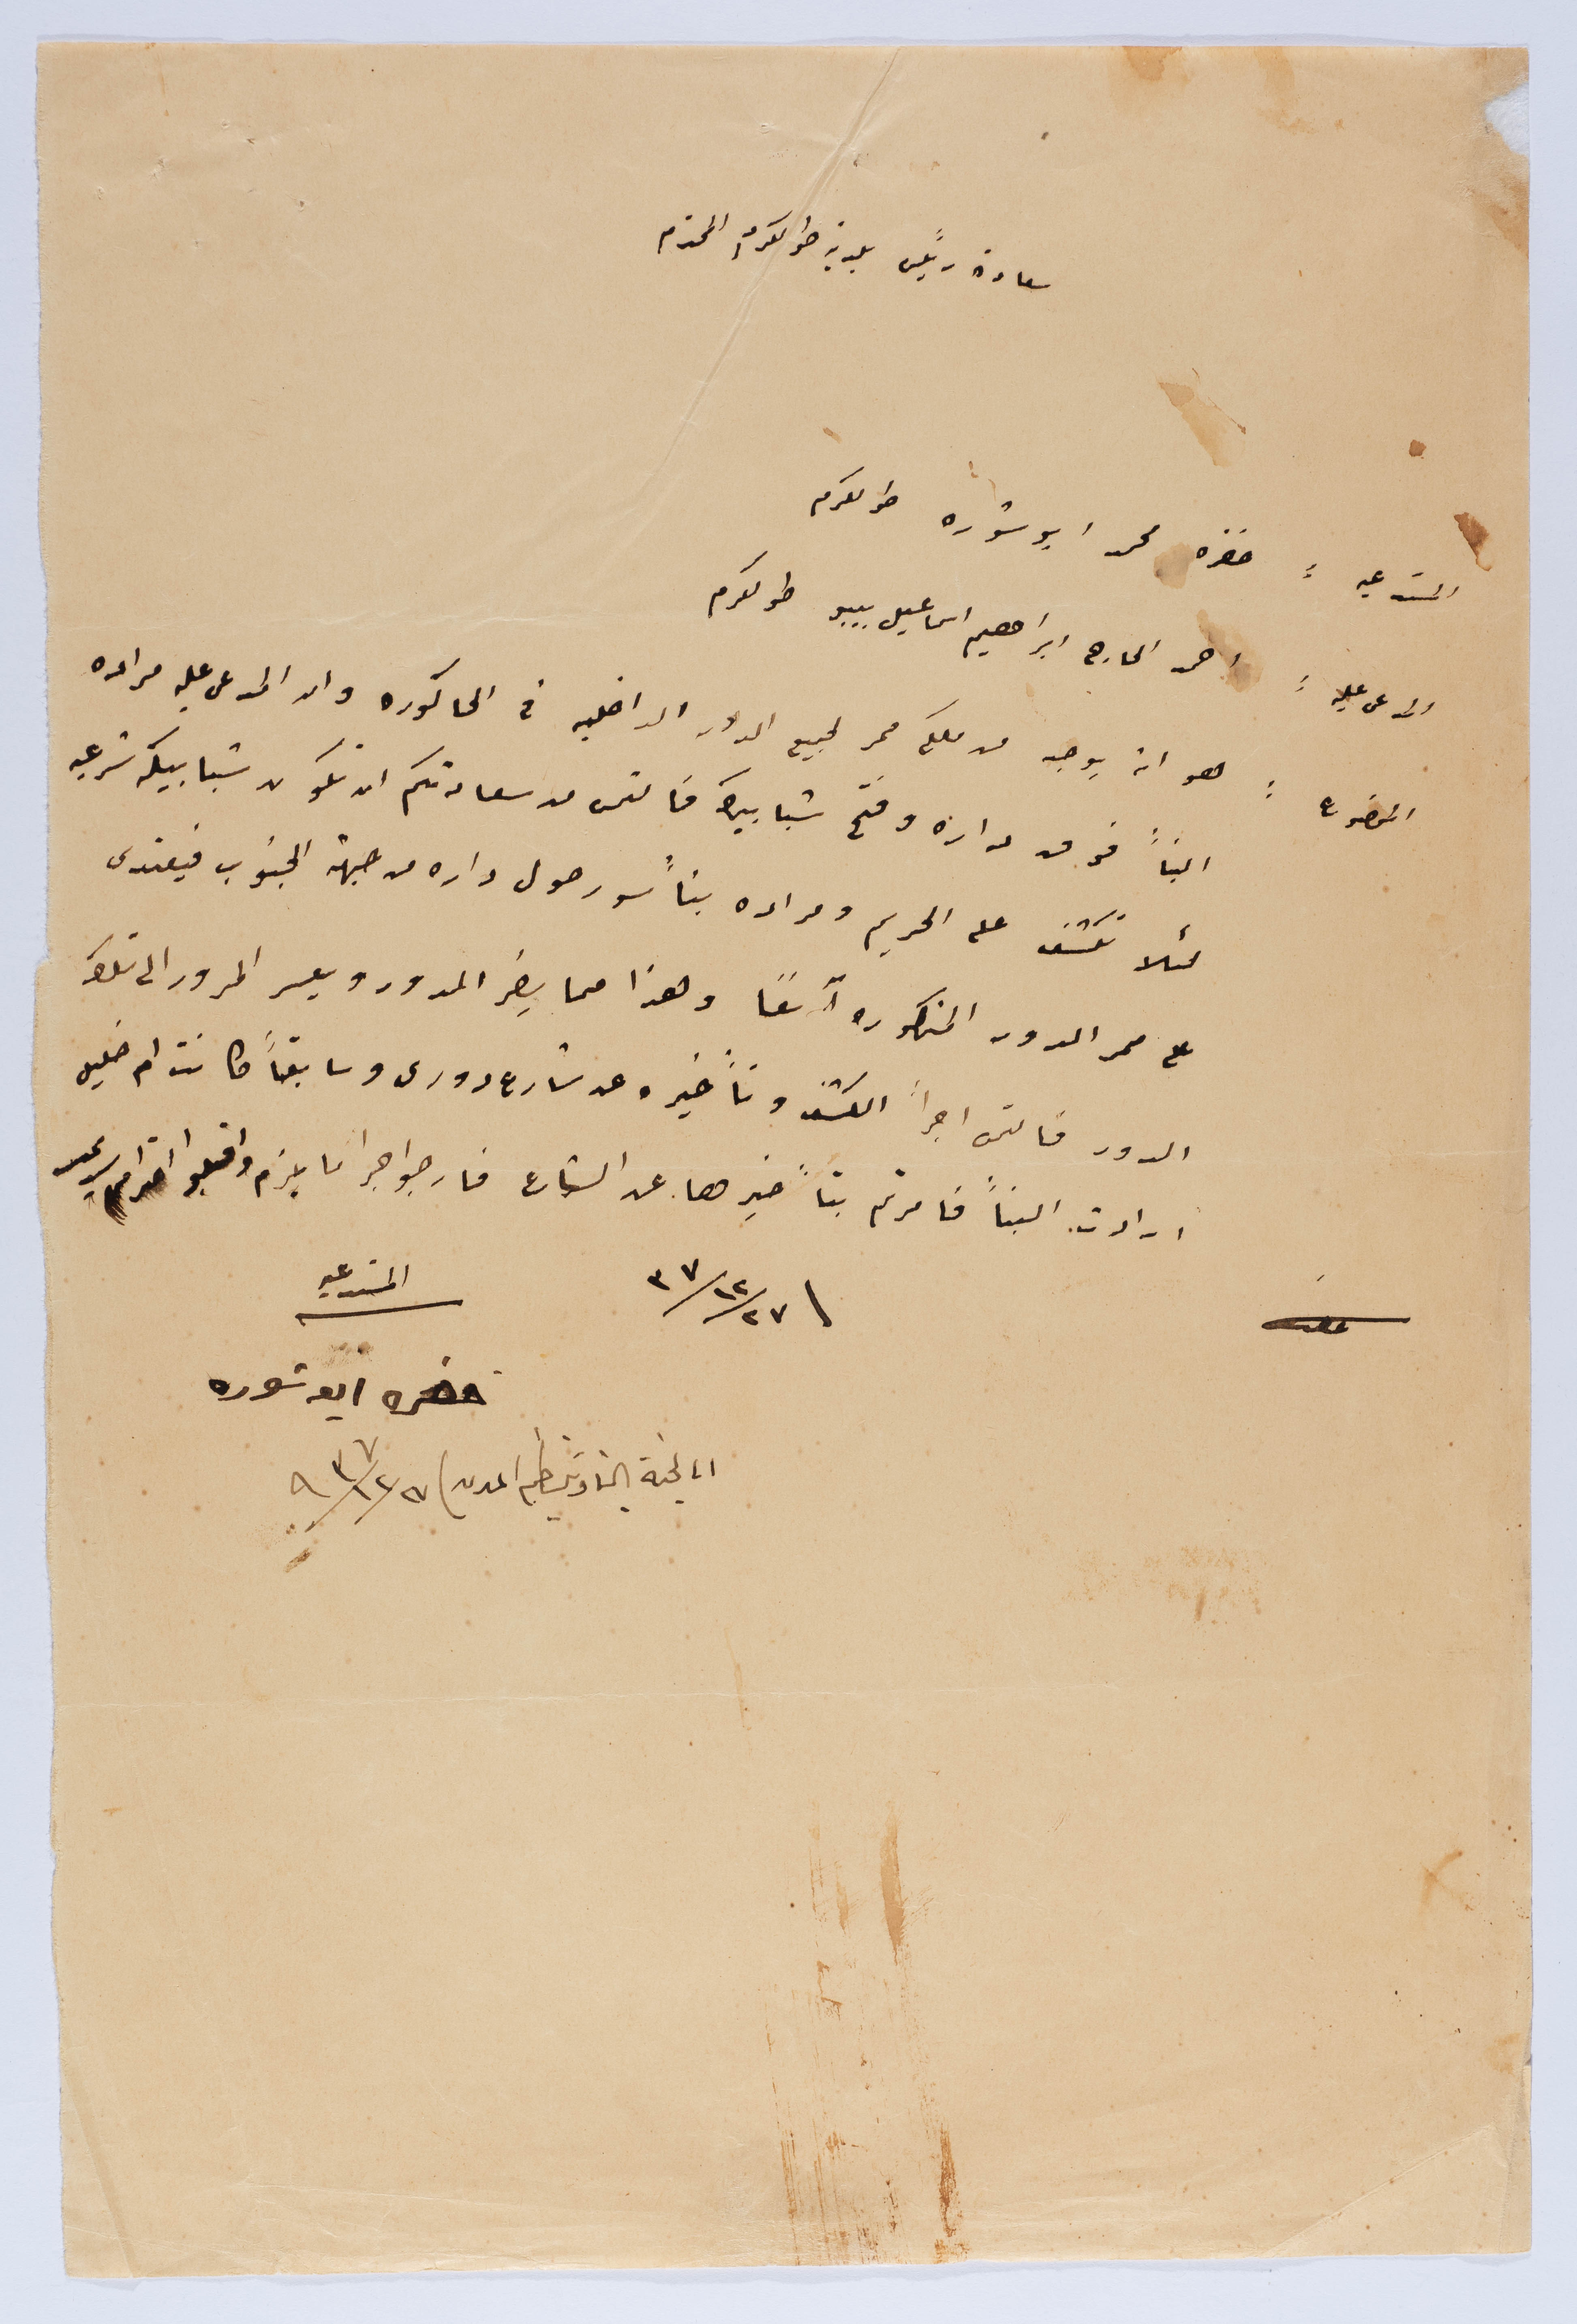 سعادة رئيس بلدية طولكرم المحترم
المستدعيه : خضره محمد ابو شوره طولكرم
المدعى عليه : احمد الحاج ابراهيم اسماعيل بيبو طولكرم
الموضوع : هو انه يوجد من ملككم ممر لجميع الدور الداخليه في الحاكوره وان المدعى عليه مراده
البناً فوق داره وفتح شبابيك فالتمس من سعادتكم ان تكون شبابيكه شرعيه
لئلا تكشف على الحريم ومراده بناً سور حول داره من جهة الجنوب فيعتدى
على ممر الدور المذكوره آنفاً وهذا مما يضر المدور ويعسر المرور الى تلك
الدور فالتمس اجراً الكشف وتأخيره عن شارع دورى وسابقاً كانت ام خليل
ارادت البناً فامرتم بتأخيرها عن الشارع فارجوا اجرا ما يلزم واقبلوا احترامى سيدى
٢٧/١٢/٣٧ المستدعيه
خضره ابو شوره
الى لجنة البنا وتنظيم المدن ٢٧/١٢/٩٣٧